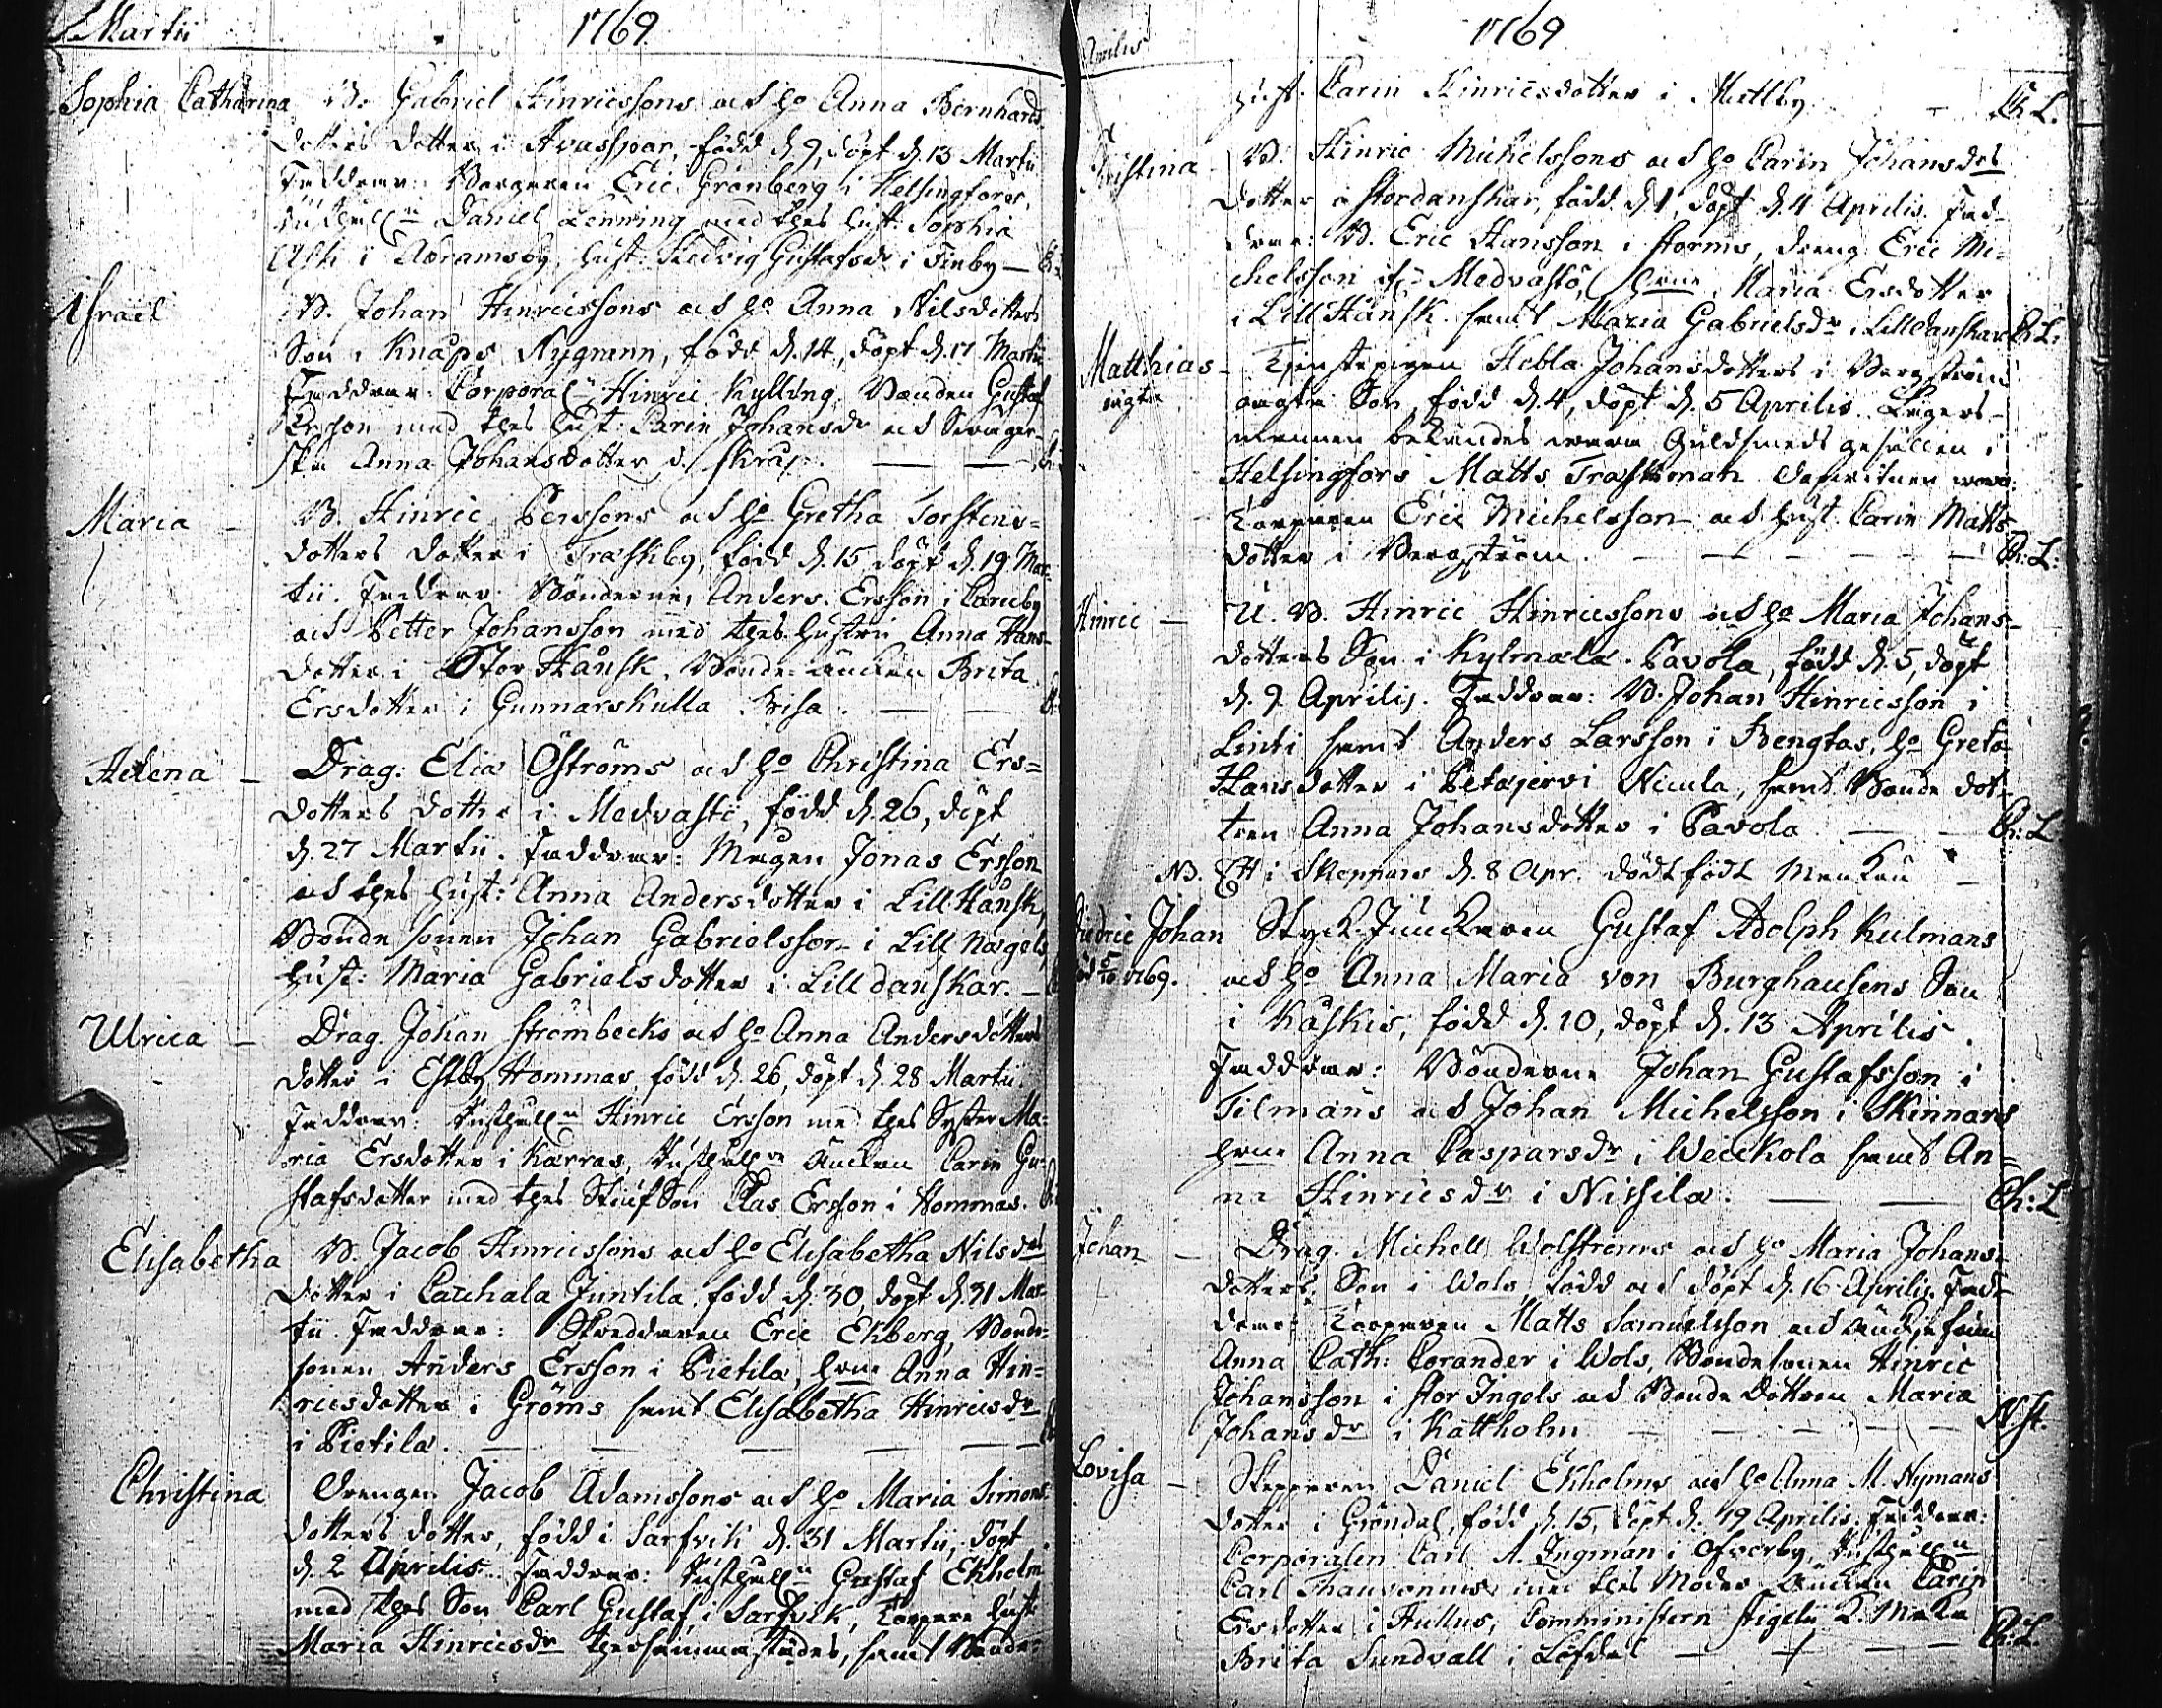 Martii 1769
Sophia Catharina B. Gabriel Hinricssons och h:o Anna Bernhards
dotters dotter i Avasspar, född d. 9, döpt d. 13 Martii
Faddrar: Borgaren Eric Grönberg i Helsingfors,
Daniel Lenning med thes hust: Sophia
i Abramsby, hust: Hedvig Gustafsdr i Finby —
Israel B. Johan Hinricssons och h:o Anna Nilsdotters
Son i Knaps Nygrann, född d. 14, döpt d. 17 Martii
Faddrar: Corporal Hinric Kylling, Bonden Gustaf
Ersson med thes hust: Carin Johansdr och
Anna Johansdotter i Skrap. — —
Maria — B. Hinric Perssons och h:o Gretha Torstens=
dotters dotter i Träskby, född d. 15 döpt d. 19 Mar=
tii. Faddrar: Bönderne, Anders Ersson i Careby
och Petter Johansson med thes hustru Anna Hans=
dotter i Stor Hånsk, Bonde-änckan Brita
Ersdotter i Gunnarskulla Brisa. — —
Helena — Drag: Elia Öströms och h:o Christina Ers=
dotters dotter i Medvastö, född d. 26, döpt
d. 27 Martii. Faddrar: Mågen Jonas Ersson
och thes hust: Anna Andersdotter i Lill Hånsk,
Bonde sonen Johan Gabrielsson i Lill Nägels,
hust: Maria Gabrielsdotter i Lill danskar. —
Ulrica — Drag. Johan Strömbecks och h:o Anna Andersdotters
dotter i Estby Hommas, född d. 26, döpt d. 28 Martii.
Faddrar: Rusthåll:n Hinric Ersson med thes Syster Ma=
ria Ersdotter i Karras, Rusthåll:re änckan Carin Gu=
stafsdotter med thes StiufSon Clas Ersson i Hommas.
Elisabetha B. Jacob Hinricssons och h:o Elisabetha Nilsdrs
dotter i Cauchala Juntila, född d. 30, döpt d. 31 Mar=
tii. Faddrar: Skreddaren Eric Ekberg, Bonde=
sonen Anders Ersson i Pietila, h:rne Anna Hin=
ricsdotter i Gröms samt Elisabetha Hinricsdr
i Pietila. — — — — —
Christina Drengen Jacob Adamssons och h:o Maria Simons
dotters dotter, född i Sarfvik d. 31 Martii, döpt
d. 2 Aprilis. Faddrar: Rusthåll:n Gustaf Ekholm
med thes Son Carl Gustaf i Sarfvik, Torpare hust:
Maria Hinricsdr thersammastädes, samt Bonde=
Aprilis 1769
hust. Carin Hinricsdotter i Mattby — Ch: L.
Christina B. Hinric Michelssons och h:o Carin Johansdrs
dotter i Stordanskar, född d. 1, döpt d. 4 Aprilis. Fad=
drar: B. Eric Hansson i Storms, dreng Eric Mi=
chelsson i Medvastö, h:rne Maria Ersdotter
i Lill Hånsk samt Maria Gabrielsdr i Lilldanskar Ch: L:
Matthias — Tjenstepigan Hebla Johansdotters i Bergström
oägta oägta Son, född d. 4, döpt d. 5 Aprilis. Lägers=
mannen bekändes wara Guldsmeds gesällen i
Helsingfors Matts Traskman wara
Torparen Eric Michelsson och hust. Carin Matts
dotter i Bergström. — — — — — Ch: L:
Hinric — U. B. Hinric Hinricssons och h:o Maria Johans=
dotters Son i Kylmala Pavola, född d. 5, döpt
d. 9 Aprilis. Faddrar: B. Johan Hinricsson i
Linti samt Anders Larsson i Bengtas, h:o Greta
Hansdotter i Petajervi Nicula, samt Bonde dot=
tren Anna Johansdotter i Pavola — — Ch: L
NB. Ett i Skeppars d. 8 Apr. dödt födt MenKön —
Fredric Johan Styck-Junckaren Gustaf Adolph Kulmans
1769. och h:o Anna Maria von Burghausens Son
i Kåskis, född d. 10, döpt d. 13 Aprilis.
Faddrar: Bönderne Johan Gustafsson i
Tilmans och Johan Michelsson i Skinnars
h:rne Anna Caspardr i Weickola samt An=
na Hinricsdr i Nissila. — — Ch: L
Johan — Drag. Michell Wolströms och h:o Maria Johans=
dotters Son i Wols, född och döpt d. 16 Aprilis. Fad=
drar: Torparen Matts Samuelsson och
Anna Cath: Corander i Wols, Bondesonen Hinric
Johansson i Stor Ingels och Bonde Dottren Maria
Johansdr i Kattholm — — — — — N. St.
Lovisa — Skepparen Daniel Ekholms och h:o Anna M. Nymans
dotter i Gröndal, född d. 15, döpt d. 19 Aprilis. Faddrar:
Corporalen Carl A. Ingman i Ofverby, Rusthåll:n
Carl Thauvonius med thes Moder Änckan Carin
Ersdotter i Hullus, Comministern Stigelii K. Maka
Brita Sundvall i Löfdal — — — Ch: L.